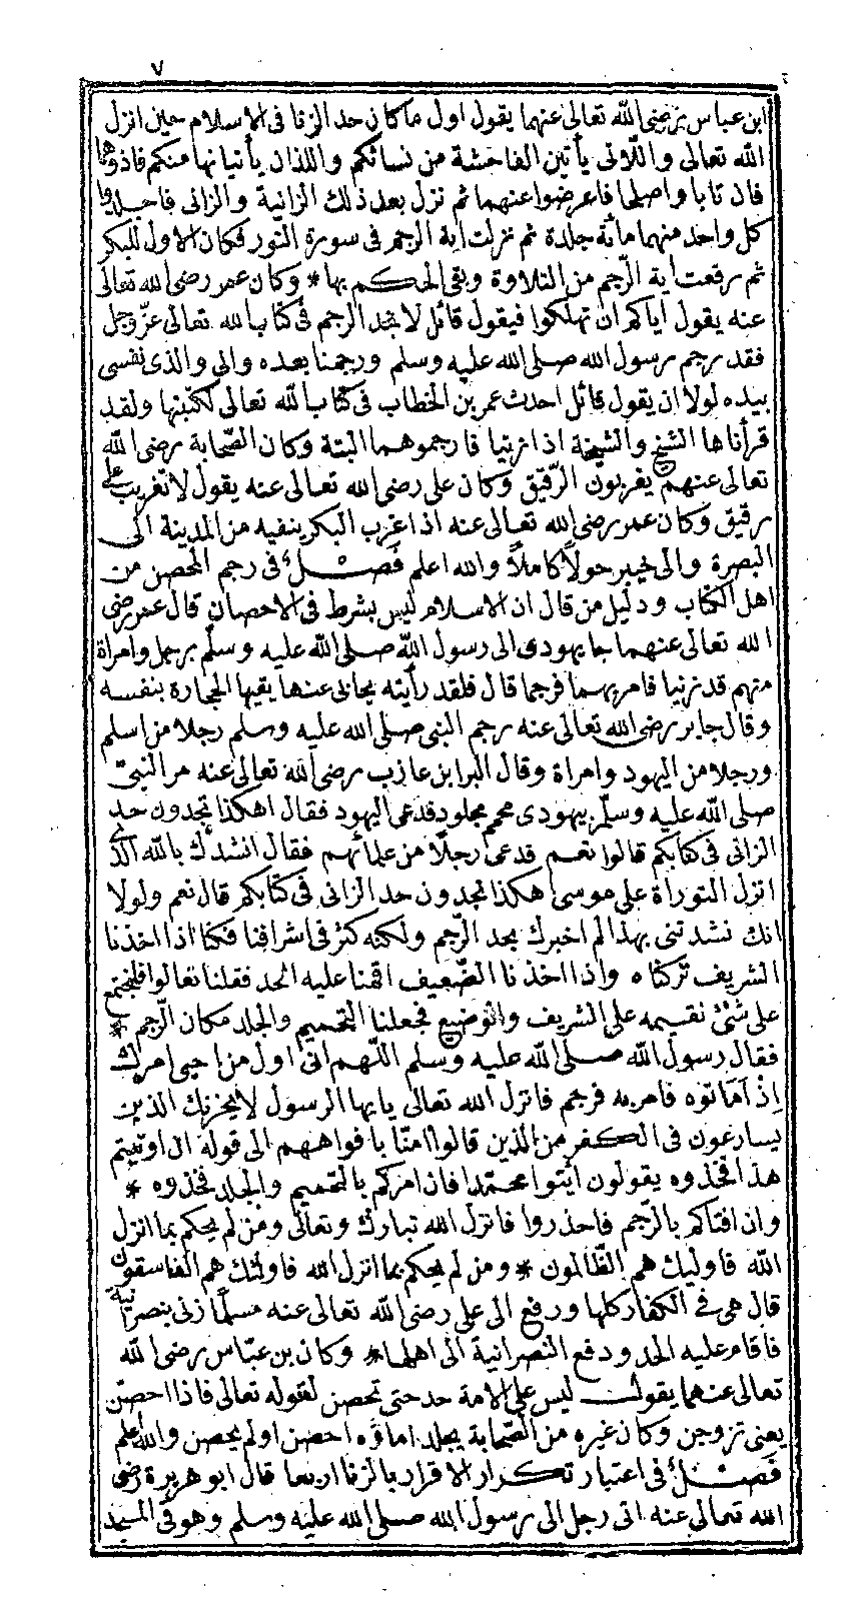 ٧
ابن عباس رضى الله تعالى عنهما يقول اول ما كان حد الزنا فى الاسلام حين انزل
الله تعالى واللاتى يأتين الفاحشة من نسائكم واللذان يأتيانها منكم فاذوهما
فان تابا واصلحا فاعرضوا عنهما ثم نزل بعد ذلك الزانية والزانى فاجلدوا
كل واحد منهما مائة جلدة ثم نزلت اية الرجم فى سورة النور فكان الاول للبكر
ثم رفعت اية الرجم من التلاوة وبقى الحكم بها * وكان عمر رضى الله تعالى
عنه يقول اياكم ان تهلكوا فيقول قائل لا نجد الرجم فى كتاب الله تعالى عز وجل
فقد رجم رسول الله صلى الله عليه وسلم ورجمنا بعده وانى والذى نفسى
بيده لولا ان يقول قائل احدث عمر بن الخطاب فى كتاب الله تعالى لكتبتها ولقد
قرأناها الشيخ والشيخة اذا زنيا فارجموهما البتة وكان الصحابة رضى الله
تعالى عنهم يغربون الرقيق وكان على رضى الله تعالى عنه يقول لا تغريب على
رقيق وكان عمر رضى الله تعالى عنه اذا غرب البكر ينفيه من المدينة الى
البصرة والى خيبر حولاً كاملاً والله اعلم فصل فى رجم المحصن من
اهل الكتاب ودليل من قال ان الاسلام ليس بشرط فى الاحصان قال عمر رضى
الله تعالى عنهما جا يهودى الى رسول الله صلى الله عليه وسلم برجل وامراة
منهم قد زنيا فامر بهما فرجما قال فلقد رأيته يجانى عنها يقيها الحجارة بنفسه
وقال جابر رضى الله تعالى عنه رجم النبى صلى الله عليه وسلم رجلا من اسلم
ورجلا من اليهود وامراة وقال البرا بن عازب رضى الله تعالى عنه مر النبى
صلى الله عليه وسلم بيهودى محمم مجلود فدعى اليهود فقال اهكذا تجدون حد
الزانى فى كتابكم قالوا نعم فدعى رجلا من علمائهم فقال انشدك بالله الذى
انزل التوراة على موسى اهكذا تجدون حد الزانى فى كتابكم قال نعم ولولا
انك نشدتنى بهذا لم اخبرك بحد الرجم ولكنه كثر فى اشرافنا فكنا اذا اخذنا
الشريف تركناه واذا اخذنا الضعيف اقمنا عليه الحد فقلنا تعالوا فلنجتمع
على شئ نقيمه على الشريف والوضيع فجعلنا التحميم والجلد مكان الرجم *
فقال رسول الله صلى الله عليه وسلم اللهم انى اول من احيى امرك
اذ اماتوه فامر به فرجم فانزل الله تعالى يايها الرسول لا يحزنك الذين
يسارعون فى الكفر من الذين قالوا امنا بافواههم الى قوله ان اوتيتم
هذا فخذوه يقولون ائتوا محمدا فان امركم بالتحميم والجلد فخذوه *
وان افتاكم بالرجم فاحذروا فانزل الله تبارك وتعالى ومن لم يحكم بما انزل
الله فاوليك هم الظالمون * ومن لم يحكم بما انزل الله فاولئك هم الفاسقون
قال هى فى الكفار كلها ورفع الى على رضى الله تعالى عنه مسلما زنى بنصرانية
فاقام عليه الحد ودفع النصرانية الى اهلها * وكان بن عباس رضى الله
تعالى عنهما يقول ليس على الامة حد حتى تحصن لقوله تعالى فاذا احصن
يعنى تزوجن وكان غيره من الصحابة يجلد اماؤه احصن او لم يحصن والله اعلم
فصل فى اعتبار تكرار الاقرار بالزنا اربعا قال ابو هريرة رضى
الله تعالى عنه اتى رجل الى رسول الله صلى الله عليه وسلم وهو فى المسجد